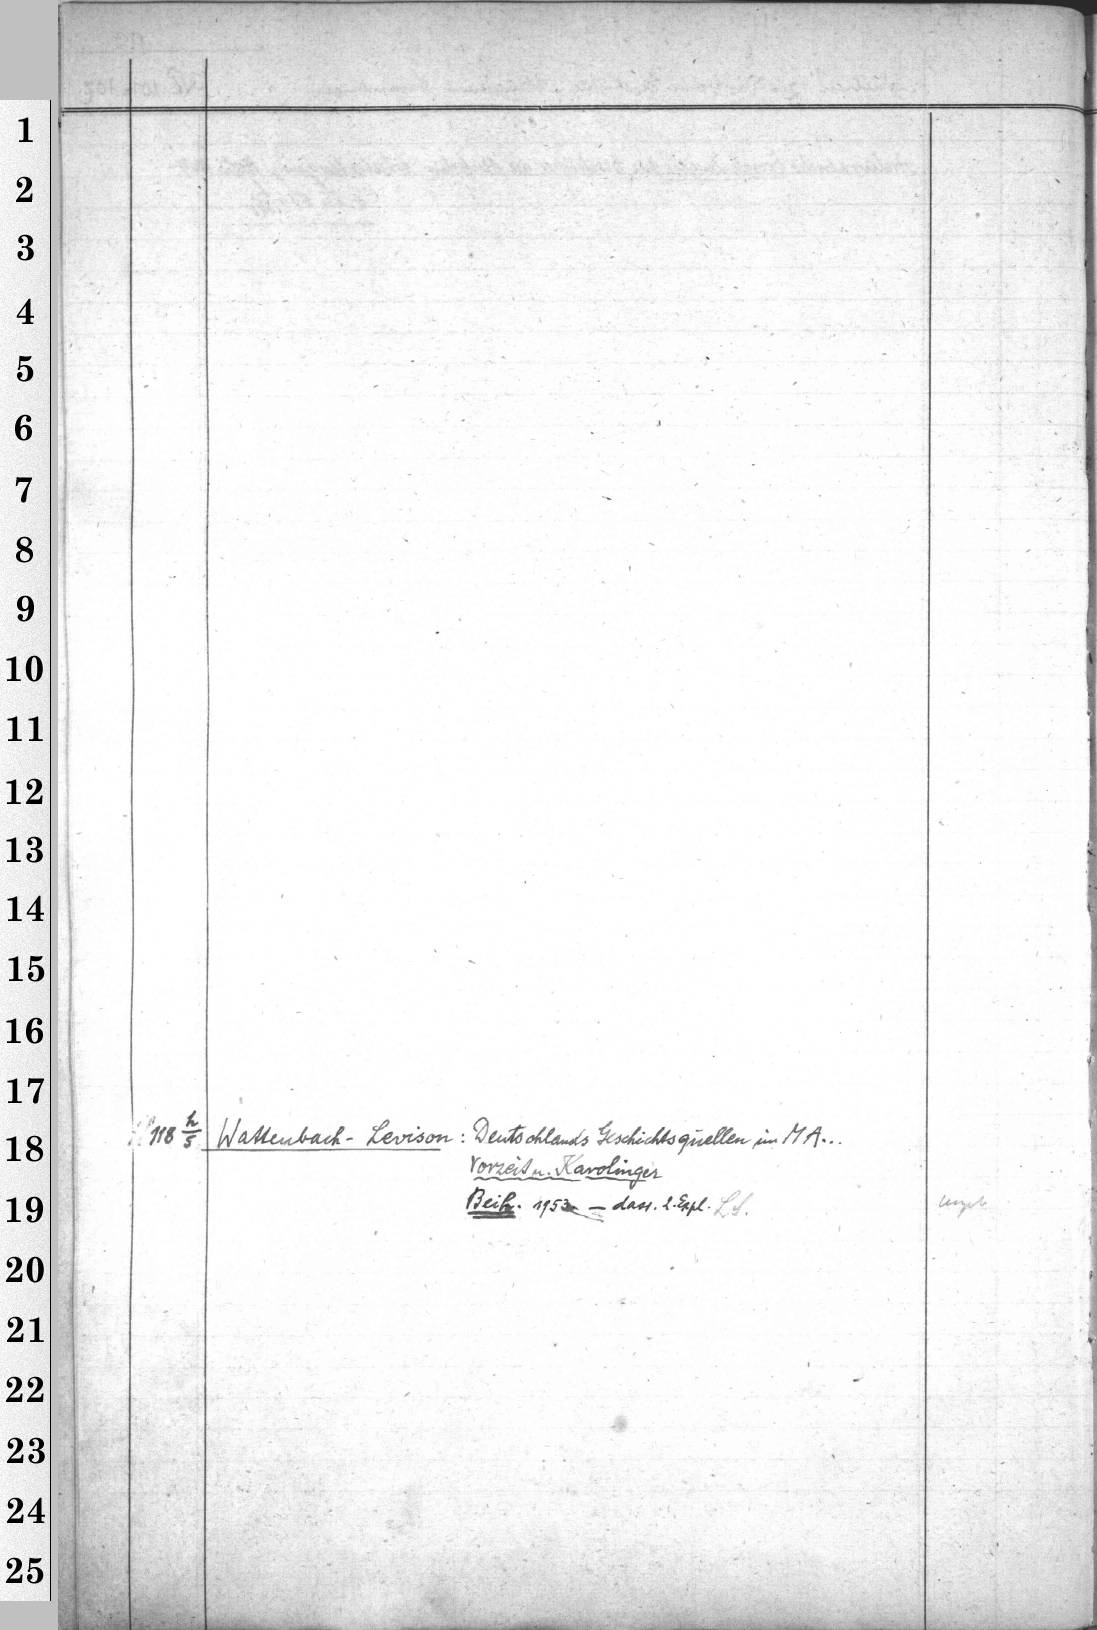 1
2
3
4
5
6
7
8
9
10
11
12
13
14
15
16
17
118 h/5 Wattenbach-Levison: Deutschlands Geschichtsquellen im MA...
18
Vorzeit u. Karolinger
19
Beih. 1953 — dass. 2. Expl. LS.
20
21
22
23
24
25